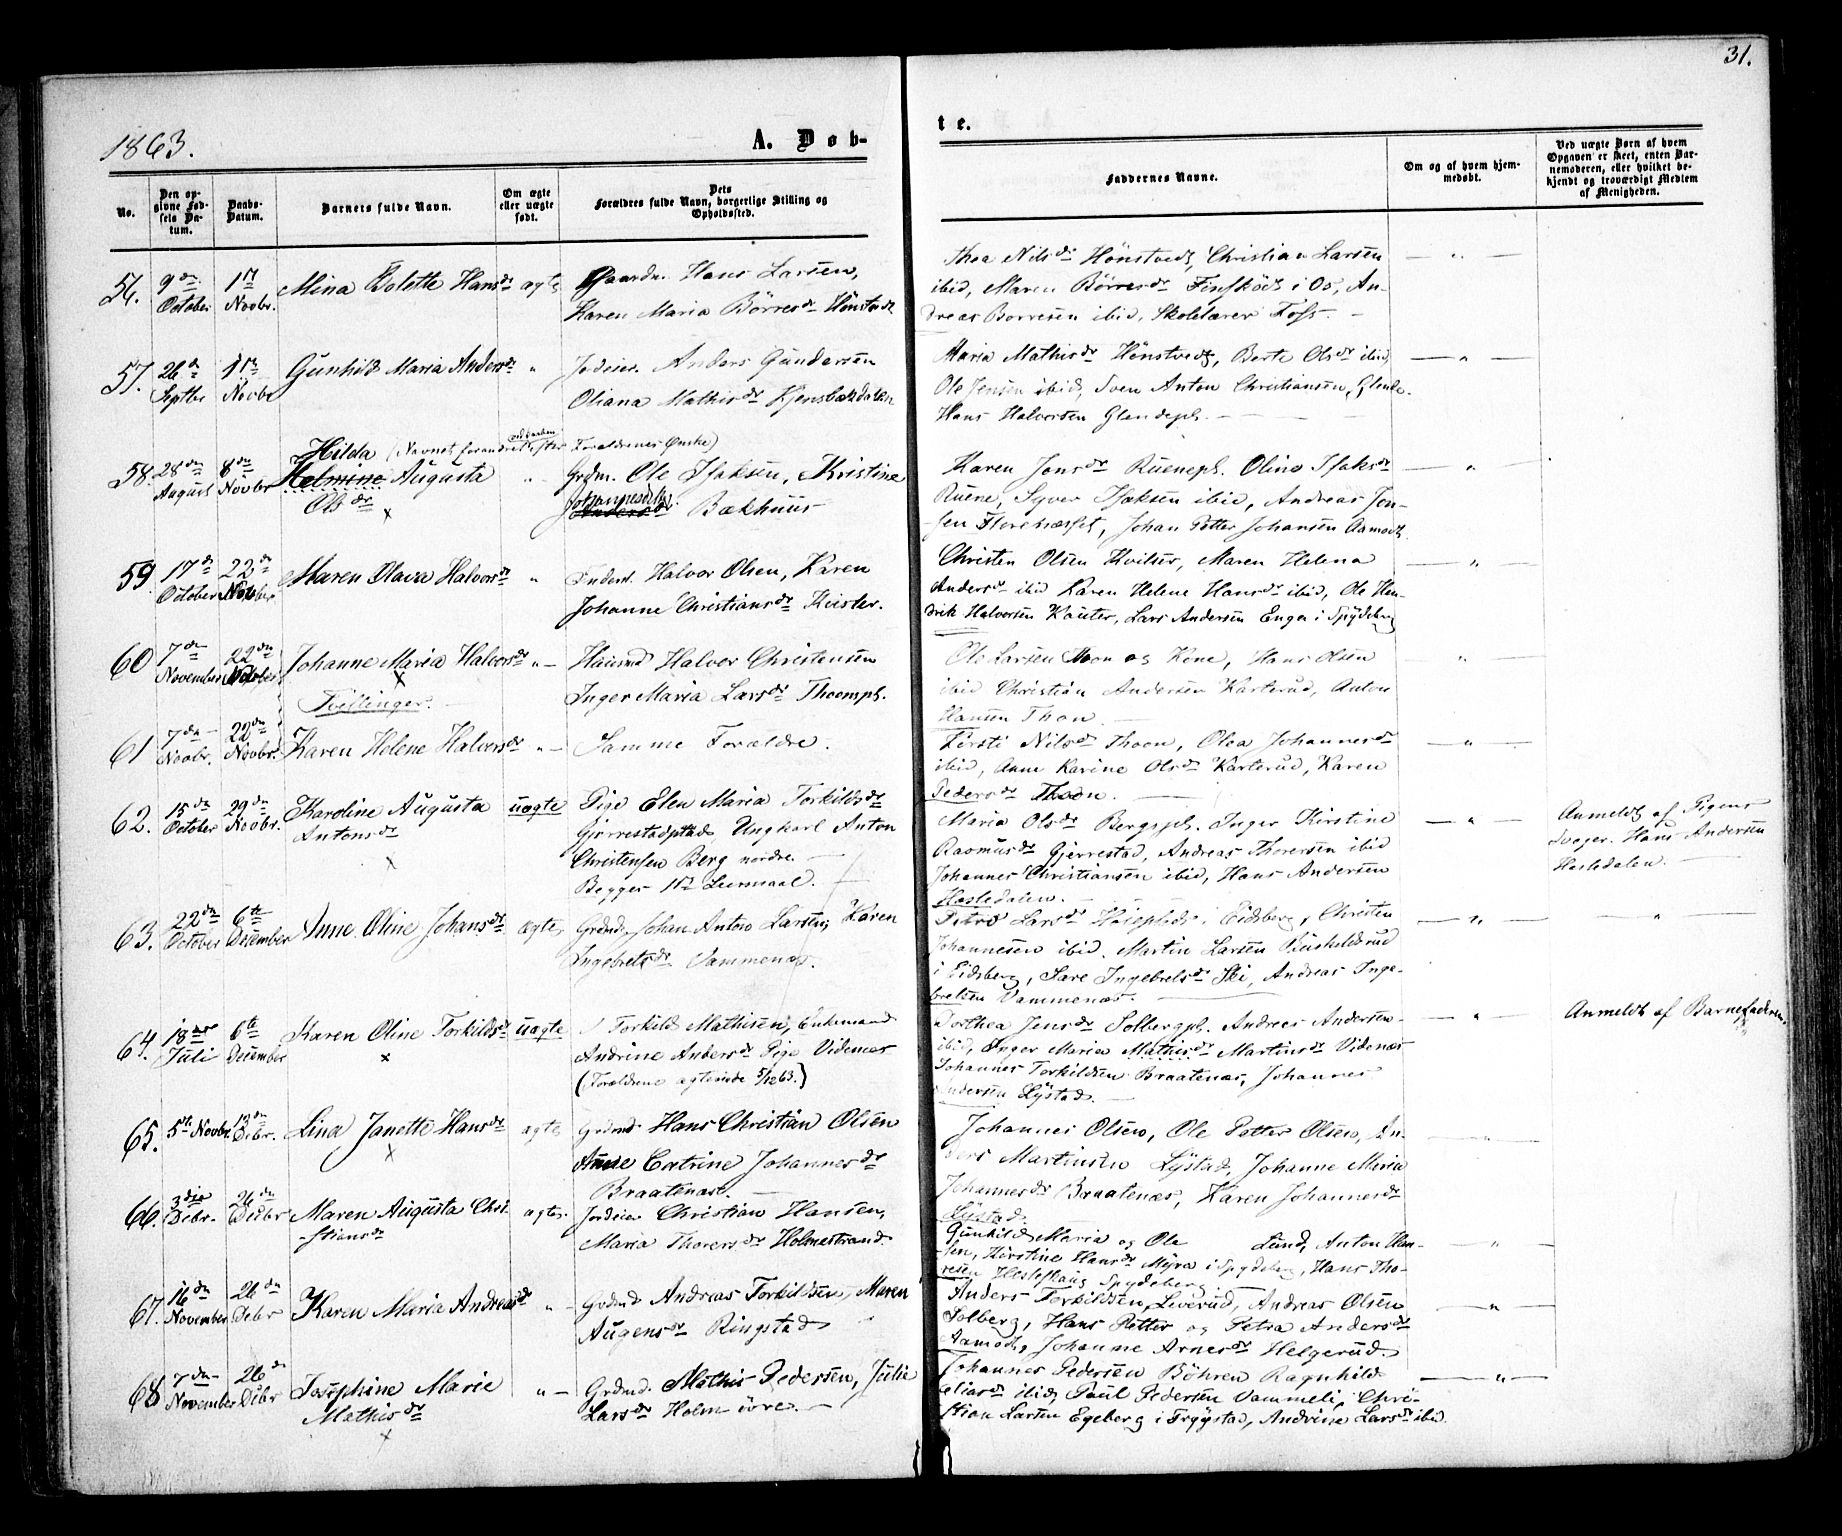 31.
1863.
A. Døb-
te.
No.
Den op-
givne Fød-
sels Da-
tum.
Daabs-
Datum.
Barnets fulde Navn.
Om ægte
eller uægte
født.
Dets
Forældres fulde Navn, borgerlige Stilling og
Opholdssted.
Faddernes Navne.
Om og af hvem hjem-
medøbt.
Ved uægte Børn af hvem
Opgaven er skeet, enten Bar-
nemoderen, eller hvilket be-
kjendt og troværdigt Medlem
af Menigheden.
56. 9de October 1ste Novbr. Mina Bolette Hansdr ægte Gaardm. Hans Larsen,
Karen Maria Börresdr Hönstvedt
Thea Nilsdr Hönstvedt, Christian Larsen
ibid, Maren Börresdr Finsködt i Os, An-
dreas Borresen ibid, Skolelærer Foss.
57. 26de Septbr 1ste Novbr Gunhild Maria Andersdr " Jordeier Anders Gundersen
Oliana Mathisdr Kjensbækdalen
Maria Mathisdr Hönstvedt, Berte Olsdr ibid,
Ole Jensen ibid, Sven Anton Christiansen, Glende.
Hans Halvorsen Glendepl.
58. 28de August 8de Novbr Hilda (Navnet forandret ved Daaben efter Forældrenes Ønske)
Helmine Augusta
Olsdr
x
Grdm. Ole Isaksen, Kristine
Johannesdr
Andersdr Bækhuus
Karen Jonsdr Ruenepl. Oline Isaksdr
Ruene, Syver Isaksen ibid, Andreas Jen-
sen Florenæsset, Johan Petter Johansen Aamodt.
59 17de October 22de November Maren Olava Halvorsdr " Inderst. Halvor Olsen, Karen
Johanne Christiansdr Kvister.
Christen Olsen Kvister, Maren Helena
Andersdr ibid Karen Helene Hansdr ibid, Ole Hen-
drik Halvorsen Kauter, Lars Andersen Enger i Spydeberg
60 7de November 22de November Johanne Maria Halvorsdr "
x
Tvillinger.
Huusmd Halvor Christensen
Inger Maria Larsdr Thoompl.
Ole Larsen Thoon og Kone, Hans Olsen
ibid Christian Andersen Karterud, Anton
Hansen Thon.
61 7de Novbr. 22de Novbr. Karen Helene Halvorsdr " Samme Forældre.
Kirsti Nilsdr Thoon, Olea Johannesdr
ibid, Anne Karine Olsdr Karterud, Karen
Pedersdr Thoon.
62. 15de October 29de Novbr. Karoline Augusta
Antonsdr
x
uægte Pige Elen Maria Torkildsdr
Gjerrestadpladsen Ungkarl Anton
Christensen Berg nordre.
Begges 1ste Leiermaal.
Maria Olsdr Bergspl. Inger Kirstine
Rasmusdr Gjerrestad, Andreas Thorersen ibid
Johannes Christiansen ibid, Hans Andersen
Hasledalen.
Anmeldt af Pigens
Svoger. Hans Andersen
Hasledalen.
63. 22de October 6te December Anne Oline Johansdr ægte Grdmd. Johan Anton Larsen, Karen
Ingebretsdr Vammenæs.
Petra Larsdr Haiepladsen i Eidsberg, Christen
Johannesen ibid. Martin Larsen Buskeldsrud
i Eidsberg, Sare Ingebretsdr Ski, Andreas Inge-
bretsen Vammenæs.
64. 18de Juli 6te December Karen Oline Torkildsdr uægte
x
Torkild Mathisen, Enkemand
Andrine Andersdr Pige Videnæs
(Forældrene ægteviede 5/12 63.)
Dorthea Jensdr Solbergpl. Andreas Andersen
ibid, Inger Maria Mathisdr Martinsdr Videnæs
Johannes Torkildsen Braatenæs, Johannes
Andersen Lystad.
Anmeldt af Barnefaderen.
65. 5te Novbr. 13de Debr. Lina Janette Hansdr ægte
x
Grdmd Hans Christian Olsen
Anne Catrine Johannesdr
Braatenæs.
Johannes Olsen, Ole Petter Olsen, An-
ders Martinsen Lystad, Johanne Maria
Johannesdr Braatenæs, Karen Johannesdr
Lystad.
66. 3die Debr. 26de Debr Maren Augusta Chri-
stiansdr
ægte. Jordeier Christian Hansen,
Maria Thorersdr Holmestrand.
Gunhild Maria og Ole Lund, Anton Han-
sen, Kirstine Hansdr Myra i Spydeberg, Hans Tho-
resen Heslefskaug Spydeberg.
67. 16de November 26de Debr Karen Maria Andreasdr " Grdmd Andreas Torkildsen, Maren
Augensdr Ringstad
Anders Torkildsen Leverud, Andreas Olsen
Solberg, Hans Petter og Petra Andersdr
Aamodt, Johanne Arnesdr Helgerud.
68 7de November 26de Debr Josephine Marie
Mathisdr
x
" Grdmd. Mathis Pedersen, Julie
Larsdr Holm övre.
Johannes Pedersen Böhren Ragnhild
Eliasdr ibid, Paul Pedersen Vammeli, Chri-
stian Larsen Egeberg i Trygstad, Andrine Larsdr ibid.